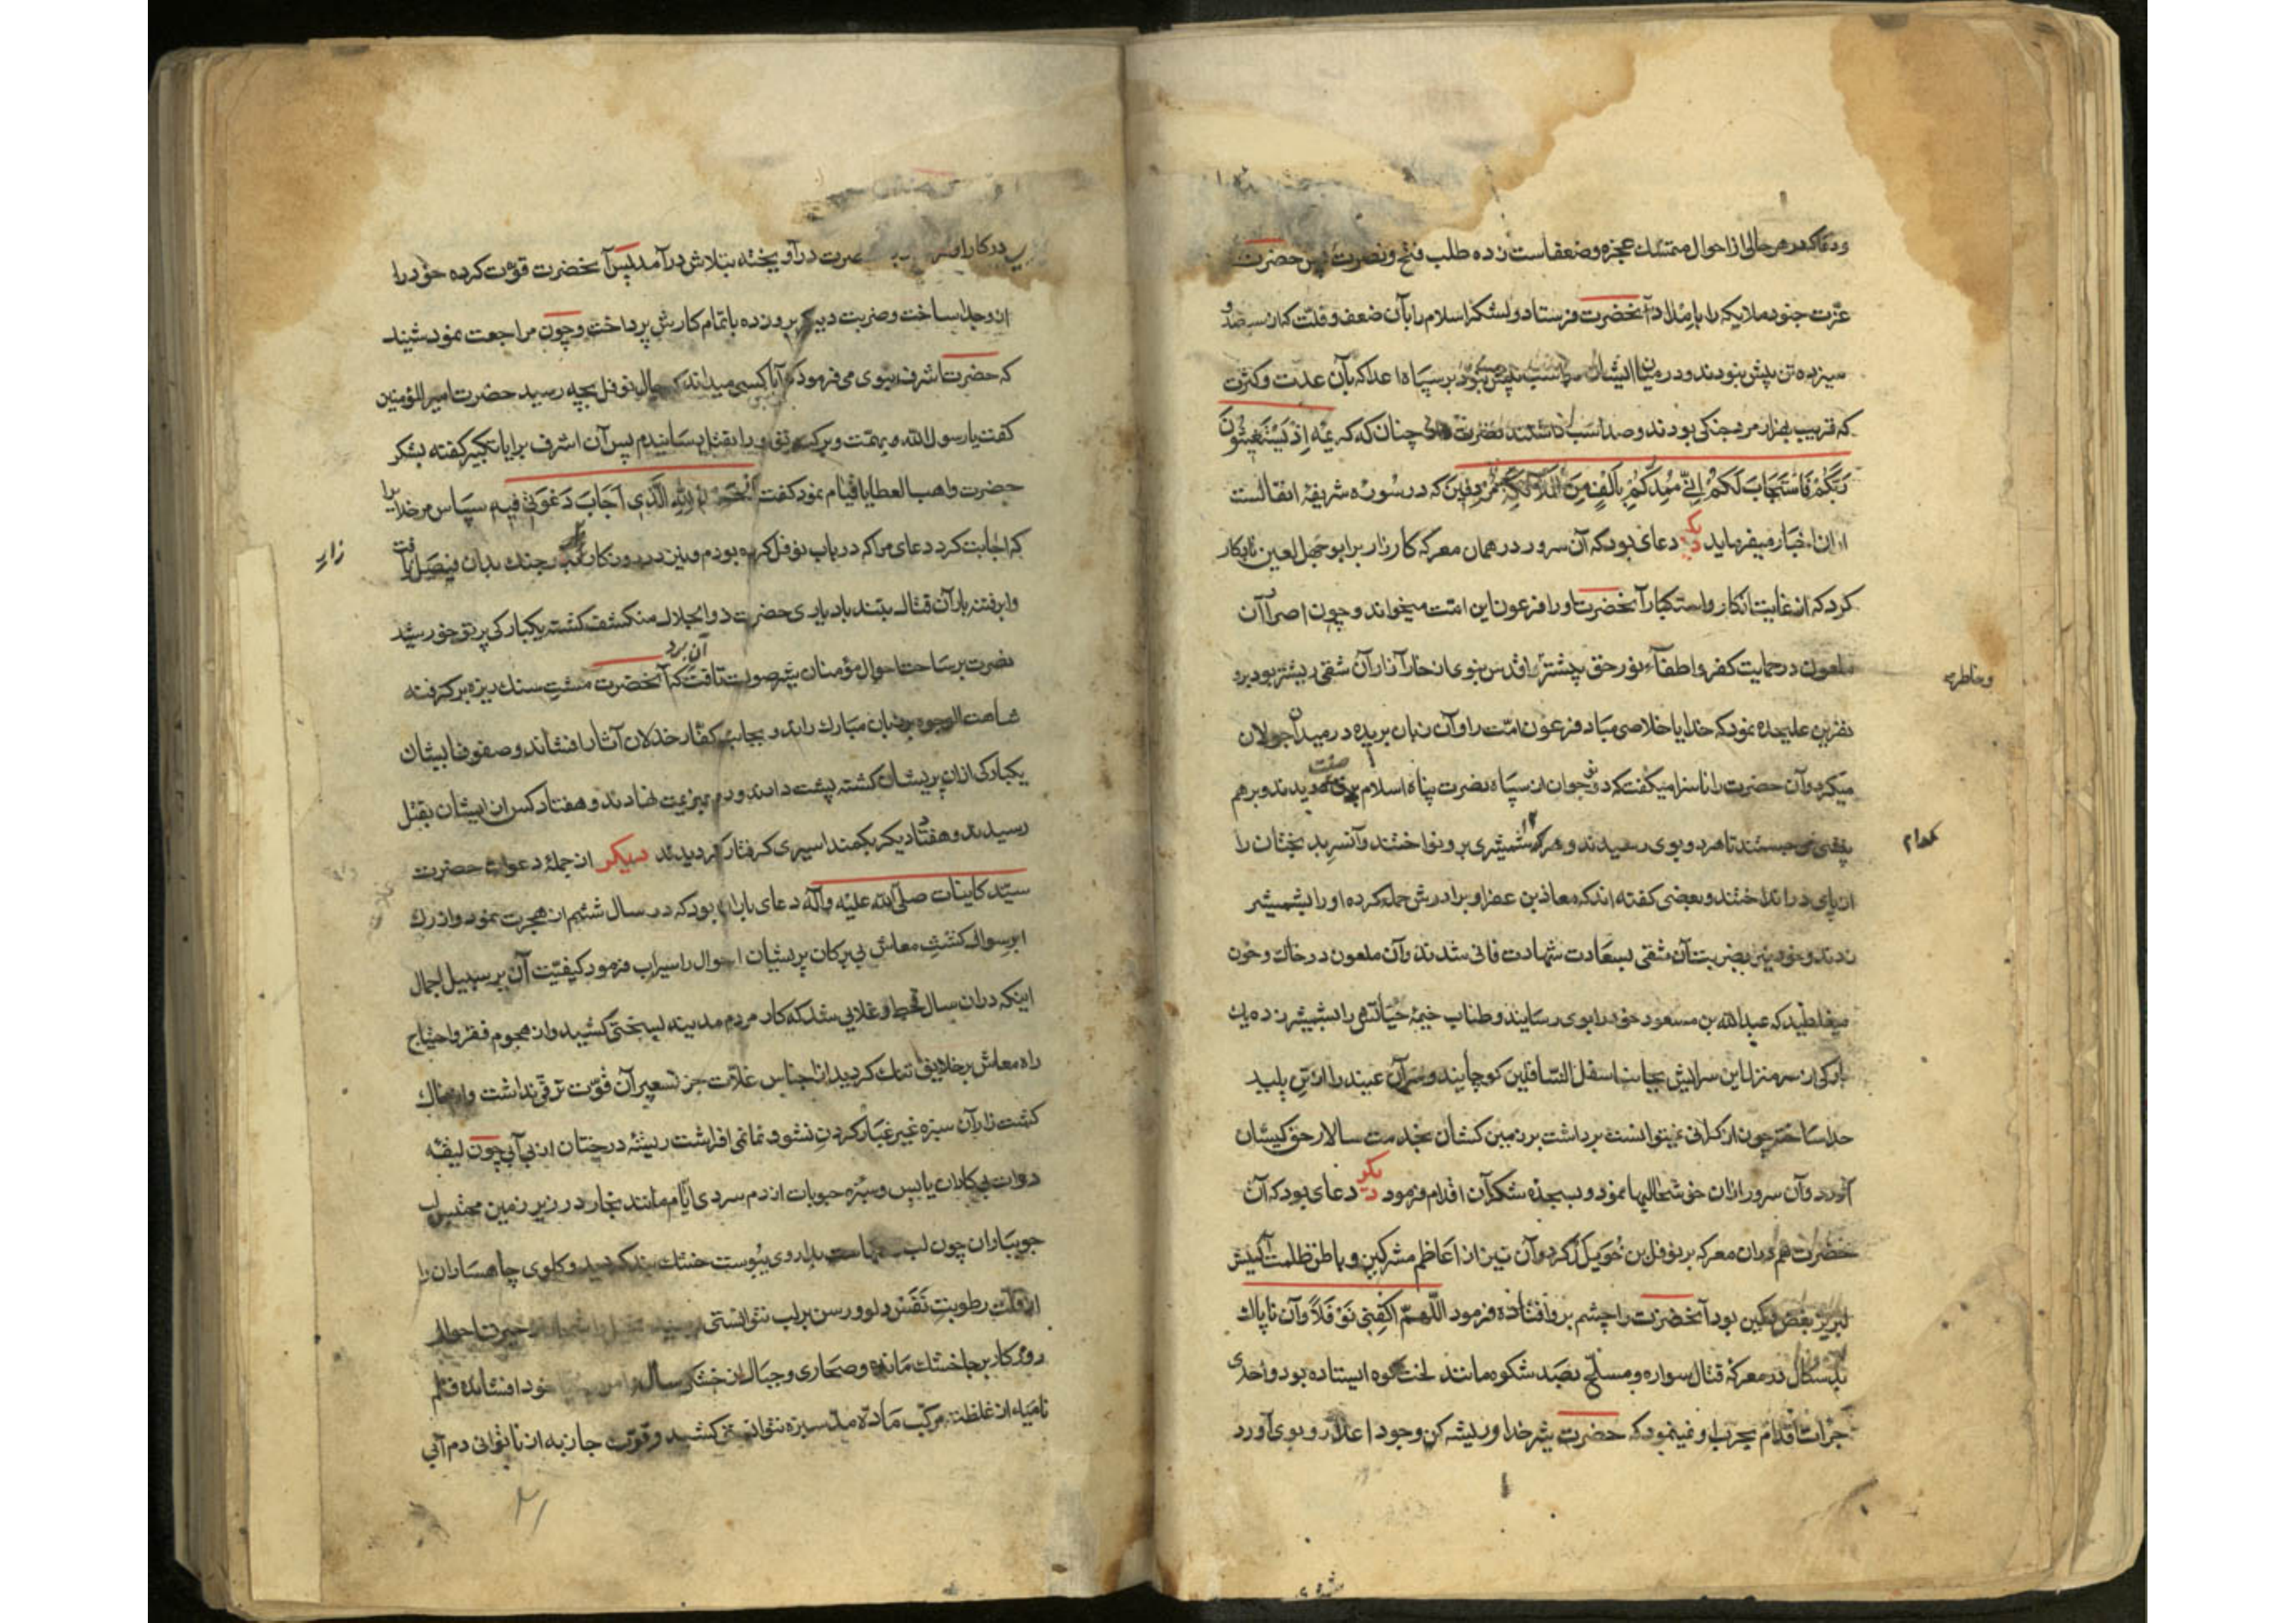 و دعا که در هر حالی از احوال متمسك عجزه و ضعفاست زده طلب فتح و نصرت پس حضرت
عزّت جنود ملایکه را بامداد آنحضرت فرستاد و لشکر اسلام را با آن ضعف و قلت که از سیصد و
سیزده تن پیش نبودند و در میان ایشان اسب پیش نبود بر سپاه اعدا که بآن عدت و کثرت
که قریب بهزار مرد جنکی بودند و صد اسب داشتند نصرت چنان که کریمه اِذْ تَسْتَغِیثُونَ
رَبَّكُمْ فَاسْتَجَابَ لَكُمْ اَنّی مُمِدُّكُمْ بِاَلْفٍ مِنَ الْمَلَائِكَةِ مُرْدِفِینَ که در سوره شریفه انفالست
از ان اخبار میفرماید دیکر دعای بود که آن سرور در همان معرکه کارزار بر ابوجهل لعین نابکار
کرد که از غایت انکار و استکبار آنحضرت او را فرعون این امت میخواند و چون اصرار آن
ملعون در حمایت کفر و اطفآء نور حق بیشتر اقدس نبوی از خار آزار آن شقی ریشتر بود برو
و خاطر
نفرین علیحده نمود که خدایا خلاصی مباد فرعون امّت را و آن زبان بریده در میدان جولان
میکرد و آن حضرت را ناسزا میگفت که دو جوان از سپاه نصرت پناه اسلام دیدند و برهم
جستند تا هر دو بوی رسیدند و هر کدام شمشیری برو نواختند و آنسر بد بختان را
کدام
از پای در انداختند و بعضی گفته اند که معاذ بن عفرا و برادرش حمله کرده او را بشمشیر
زدند و خود نیز بضربت آن شقی بسعادت شهادت فانی شدند و آن ملعون در خاك و خون
میغلطید که عبد الله بن مسعود خود را بوی رسانید و طناب خیمهٔ حیاتش را بشمشیر زده یك
بارکی از سر منزل این سرایش بجانب اسفل السّافلین کوچانید و سر آن عبید را از تن پلید
جدا ساخته چون از کرانی نمیتوانست برداشت بر زمین کشان بخدمت سالار حق کیشان
آورد و آن سرور از ان خوشحالیها نمود و بسجده شکر آن اقدام فرمود دیکر دعای بود که آن
حضرت هم در ان معرکه بر نوفل بن خویلد کرد و آن نیز از اعاظم مشرکین و باطن ظلمت آکینش
لبریز بغض و کین بود آنحضرت را چشم برو افتاده فرمود اللّهمّ اکْفِنی نَوْفَلاً و آن ناپاك
بد سکال در معرکه قتال سواره و مسلّح بصد شکوه مانند لخت کوه ایستاده بود و احدی
جرأت اقدام بحرب او نمینمود که حضرت شیر خدا و ریشه کن وجود اعدا رو بوی آورد
در کار او حضرت در آویخته بتلاش در آمد پس آنحضرت قوّت کرده خود را
از و جدا ساخت و ضربت دیکر برو زده باتمام کارش پرداخت و چون مراجعت نمود شنید
که حضرت اشرف نبوی می فرمود که آیا کسی میداند که حال نوفل بچه رسید حضرت امیر المؤمنین
کفت یا رسول الله و بهمّت و برکت تو او را بقتل رسانیدم پس آن اشرف برایا تکبیر کفته بشکر
حضرت واهب العطایا قیام نمود کفت اَلْحَمْدُ لِلّٰهِ الَّذِی اَجَابَ دَعْوَتی فِیهِ سپاس مر خدا را
که اجابت کرد دعای مرا که در باب نوفل کرده بودم و نیز در روزکار جنك بدان فیصل یافت
و ابر فتنه بار آن قتال بتند باد یاری حضرت ذو الجلال منکشف کشته یکبارکی پرتو خورشید
نصرت بر ساحت احوال مؤمنان بینصورت تافت که آنحضرت مشتِ سنك ریزه بر کرفته
آن برد
شاهت الوجوه بر زبان مبارك راند و بجانب کفّار خذلان آثار افشاند و صفوف ایشان
یکبارکی از ان پریشان کشته پشت دادند و دم بهزیمت نهادند و هفتاد کس از ایشان بقتل
رسیدند و هفتاد دیکر بکمند اسیری کرفتار کردیدند دیکر از جملهٔ دعوات حضرت
سیّد کاینات صلّی الله علیه و آله دعای باران بود که در سال ششم از هجرت نمود و از رك
ابر سوال کشتِ معاش بی برکان پریشان احوال را سیراب فرمود کیفیّت آن بر سبیل اجمال
اینکه در ان سال قحط و غلایی شد که کار مردم مدینه بسختی کشید و از هجوم فقر و احتیاج
راه معاش بر خلایق تنك کردید از اجناس غلاّت جز تسعیر آن قوّت ترقی نداشت و از خاك
کشت زار آن سبزه غیر غبار کردن نشو و نمائی افراشت ریشهٔ درختان از بی آبی چون لیقه
دوات بی کاران یابس و سبزه حبوبات از دم سردی ایّام مانند بخار در زیر زمین محتبس لب
جویباران چون لب یبوست خشك کردید و کلوی چاهساران را
از قلّت رطوبت نَفَس دلو و رسن بر لب نتوانستی حیرت احوال
روزکار بر جا خشك مانده و صحاری و جبال از خشك سال خود افشانده قلم
نامیه از غلظت مرکّب مادّه مدّ سبزه نتوانستی کشید و قوّت جاذبه از ناتوانی دم آبی